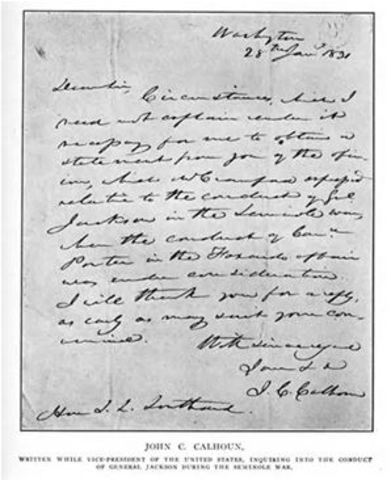 Washington
28th Jany 1831
Dear Sir,
Circumstances, which I
need not explain render it
necessary for me to obtain a
statement from you of the opin
ion, which Mr Crawford expressed
relative to the conduct of Genl
Jackson in the Seminole war,
when the conduct of Comr
Porter in the Foxardo affair
was under consideration.
I will thank you for a reply,
as early as may suit your con-
venience.
With sincere regard
I am & &
J. C. Calhoun
Hon S. L. Southard.
JOHN C. CALHOUN,
WRITTEN WHILE VICE-PRESIDENT OF THE UNITED STATES, INQUIRING INTO THE CONDUCT
OF GENERAL JACKSON DURING THE SEMINOLE WAR.